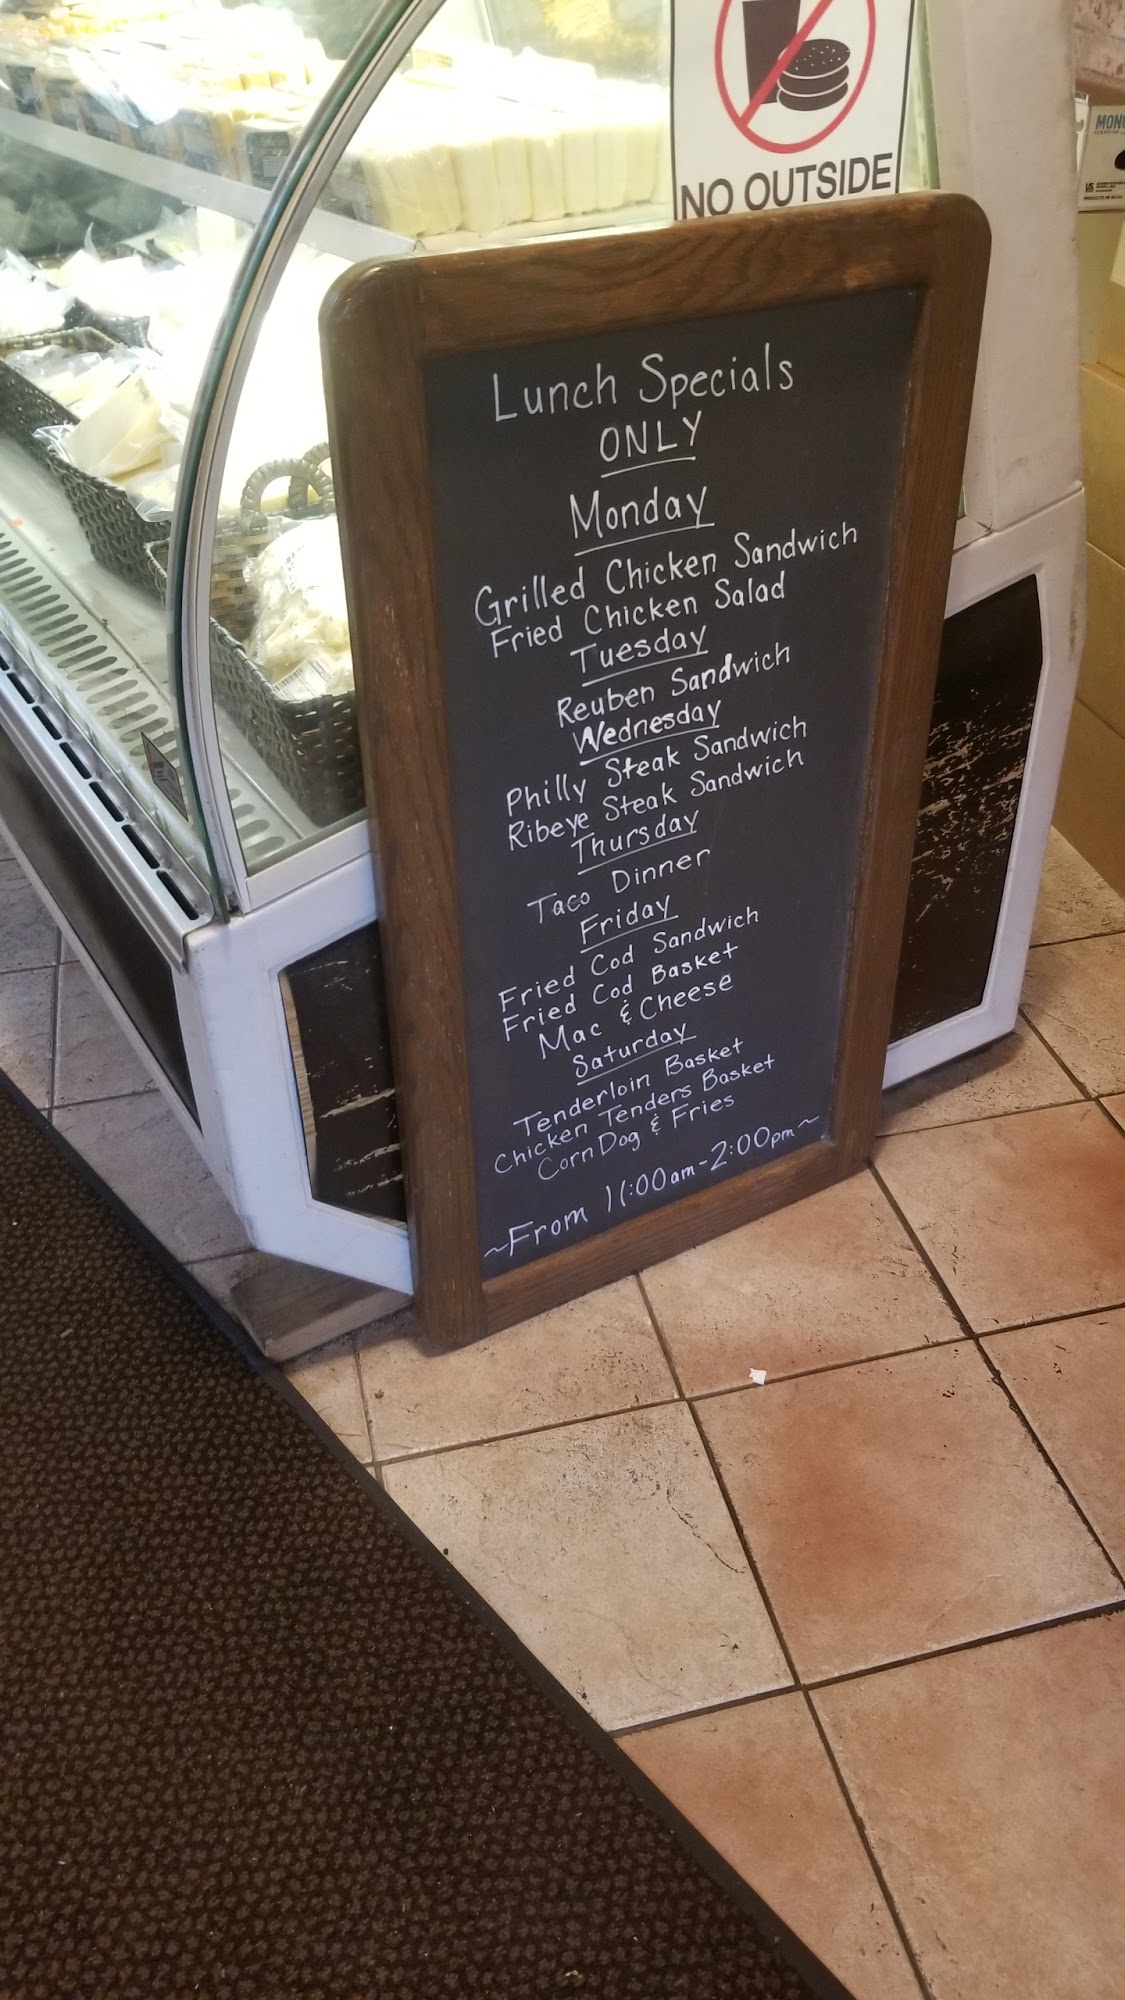 NO OUTSIDE
Lunch Specials
ONLY
Monday
Grilled Chicken Sandwich
Fried Chicken Salad
Tuesday
Reuben Sandwich
Wednesday
Philly Steak Sandwich
Ribeye Steak Sandwich
Thursday
Taco Dinner
Friday
Fried Cod Sandwich
Fried Cod Basket
Mac & Cheese
Saturday
Tenderloin Basket
Chicken Tenders Basket
Corn Dog & Fries
~From 11:00am-2:00pm~